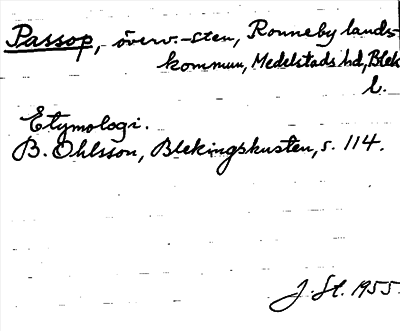 Passop, överv.-sten, Ronneby lands-
kommun, Medelstads hd, Blek
l.
Etymologi.
B. Ohlsson, Blekingskusten, s. 114.
J. St. 1955.